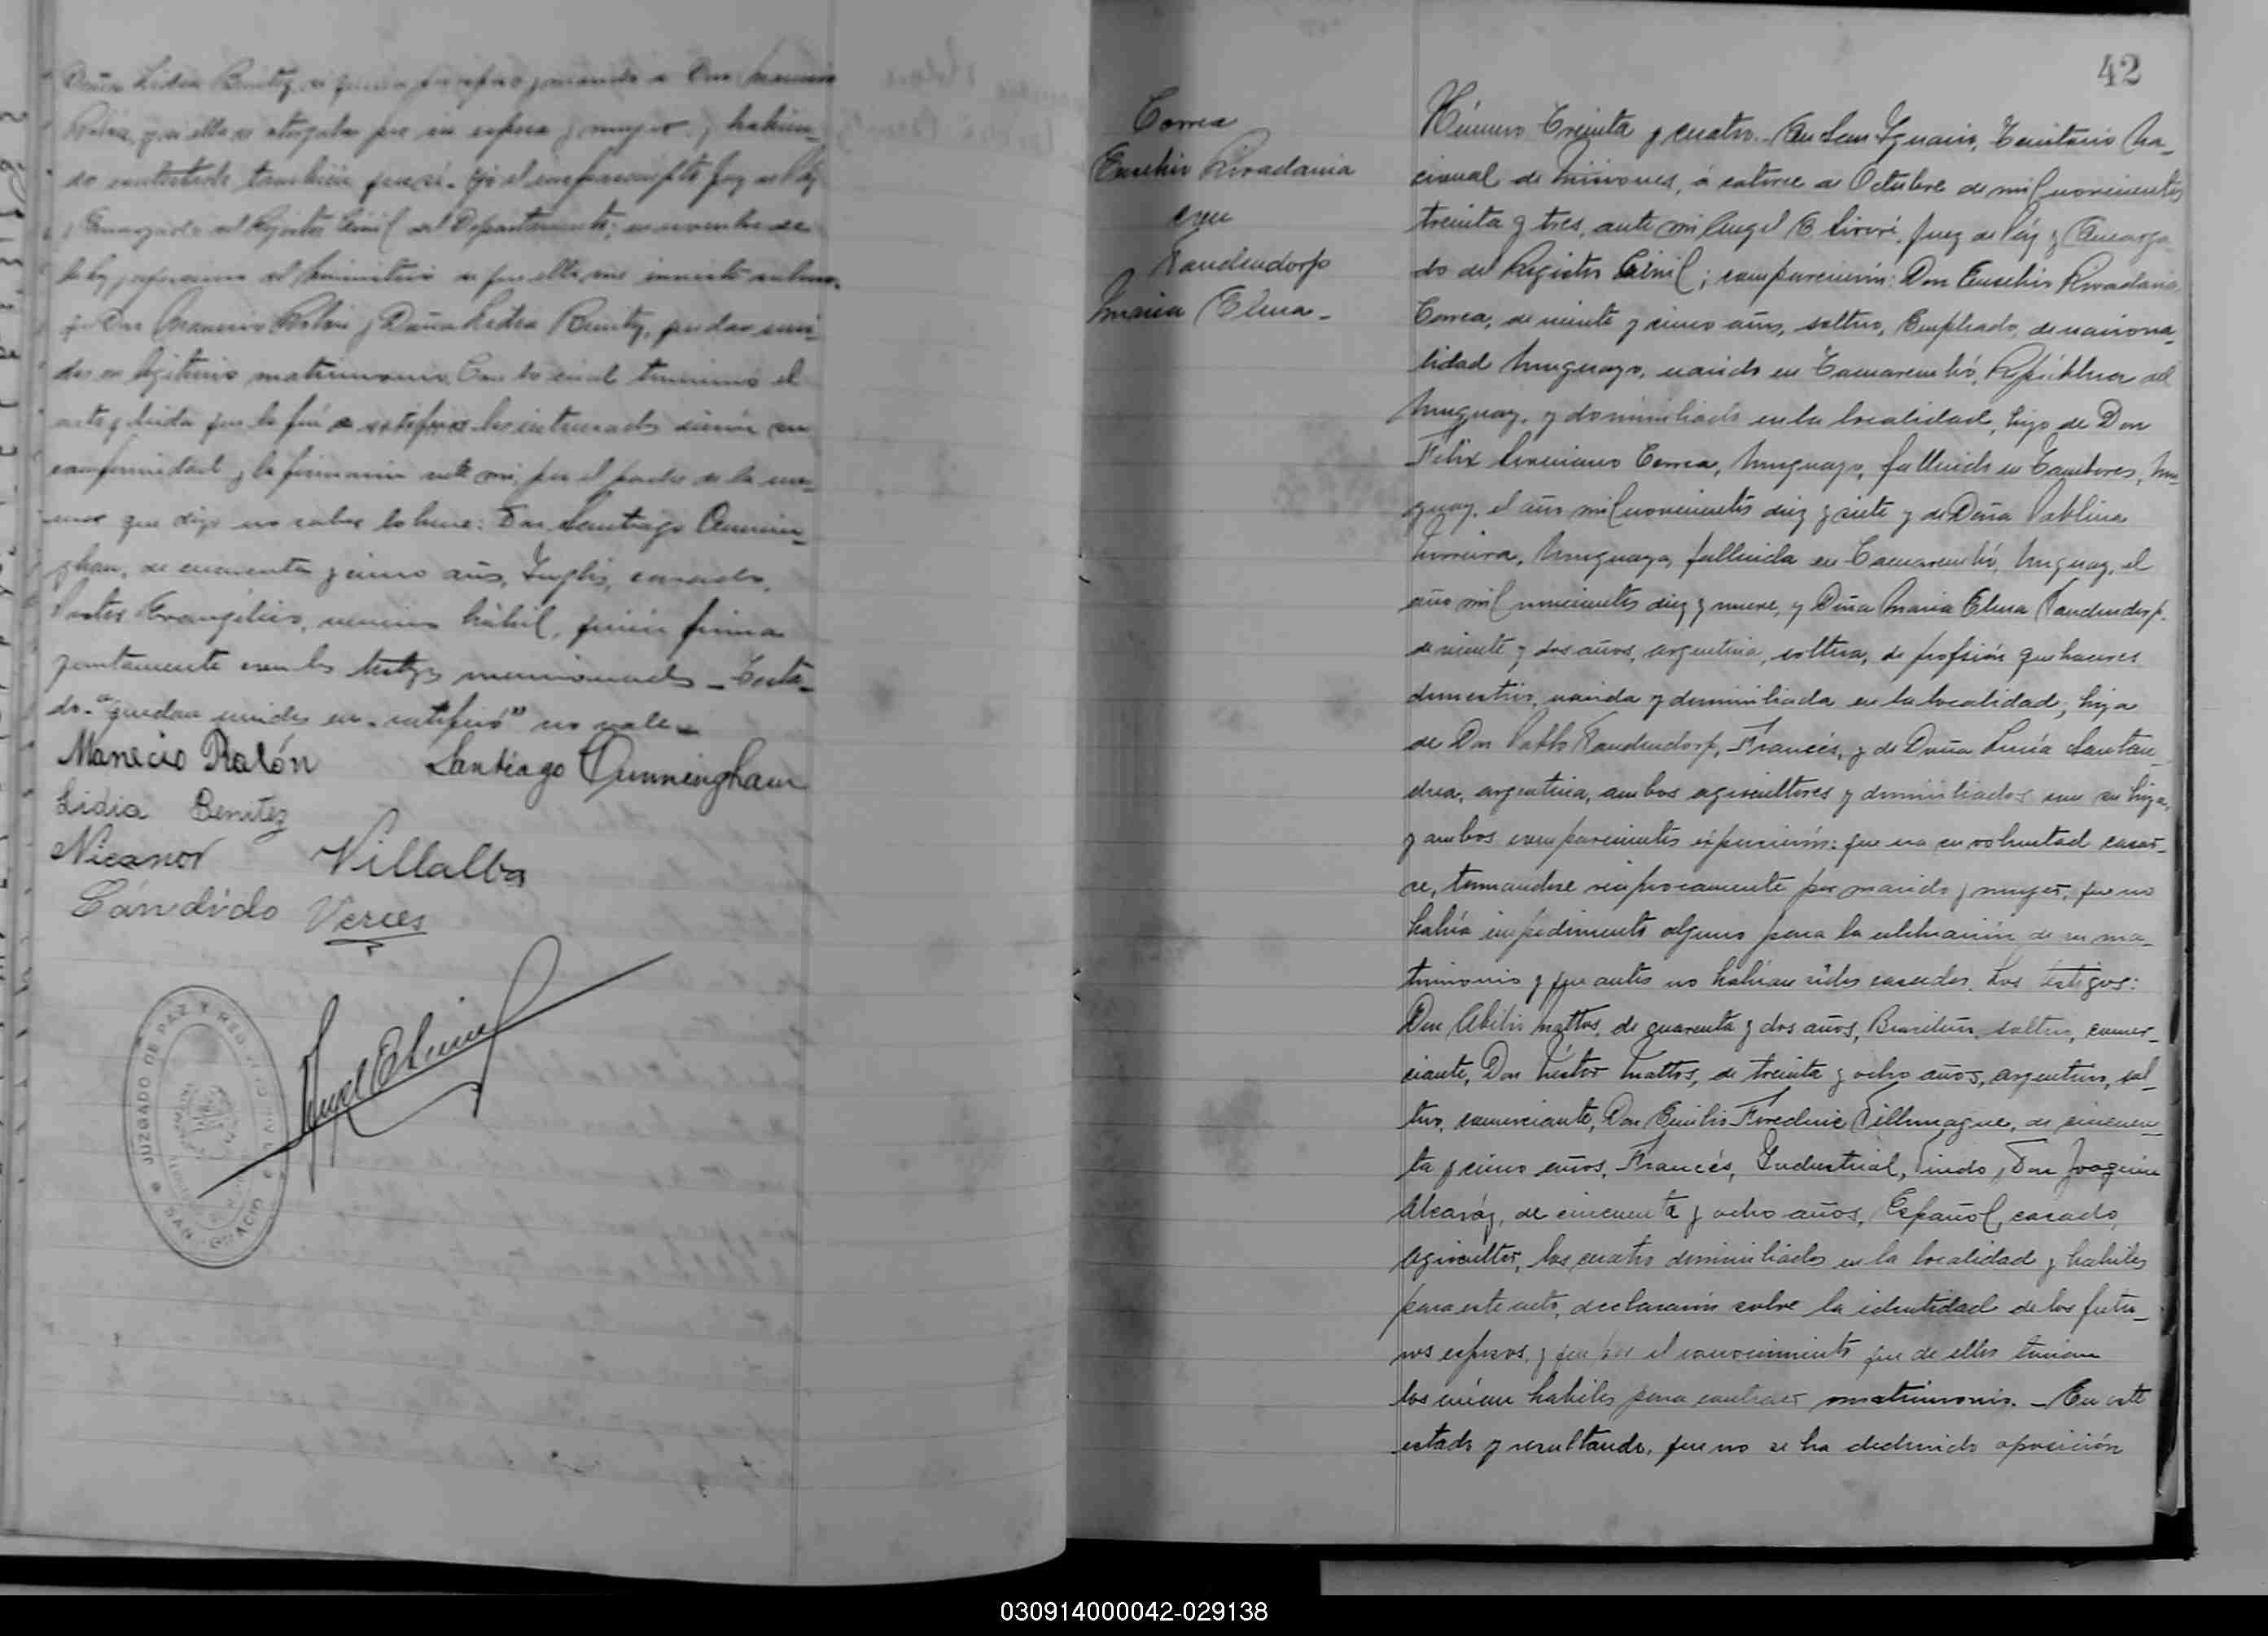 Doña Lidia Benitez, si quería por esposo y marido a Don Manecio
Rolón, y si ella se otorgaba por su esposa y mujer, y habien-
do contestado también que sí. Yo el infrascripto Juez de Paz
y Encargado del Registro Civil del Departamento; en nombre de
la ley y
que Don Manecio Rolón y Doña Lidia Benitez, quedan uni-
dos en legítimo matrimonio. Con lo cual terminó el
acto y leída que le fué se ratificó los interesados
conformidad y la firmaron ante mí; por el padre de la me-
nor que dijo no saber lo hace: Don Santiago Cunnin-
gham, de cincuenta y cinco años, Inglés, casado,
Pastor Evangélico, vecino hábil, quién firma
juntamente con los testigos mencionados – Testa-
do – "quedan unidos en – ratificó" no vale –
Manecio Rolón Santiago Cunningham
Lidia Benitez
Nicanor Villalba
Cándido Verces
JUZGADO DE PAZ Y REG. CIVIL
SAN IGNACIO
42
Correa
Eusebio Rivadavia
con
Vandendorp
Maria Elena –
Número Treinta y cuatro – En San Ignacio, Territorio Na-
cional de Misiones, á catorce de Octubre de mil novecientos
treinta y tres, ante mi Angel E. Juez de Paz y Encarga
do del Registro Civil; comparecieron: Don Eusebio Rivadavia
Correa, de veinte y cinco años, soltero, Empleado, de naciona-
lidad Uruguayo, nacido en Tacuarembó, República del
Uruguay, y domiciliado en la localidad, hijo de Don
Felix Correa, Uruguayo, fallecido en Tambores, Uru-
guay, el año mil novecientos diez y siete y de Doña Pablina
Uruguaya, fallecida en Tacuarembó, Uruguay, el
año mil novecientos diez y nueve, y Doña Maria Elena Vandendorp.
de veinte y dos años, argentina, soltera, de profesión quehaceres
domestico, nacida y domiciliada en la localidad, hija
de Don Pablo Vandendorp, Francés, y de Doña Lucía Santan-
drea, argentina, ambos agricultores y domiciliados con su hija,
y ambos comparecientes expusieron: que era su voluntad casar-
se, tomandose reciprocamente por marido y mujer, que no
había impedimento alguno para la celebración de su ma-
trimonio y que antes no habían sidos casados. Los testigos:
Don Abilio Mattos, de cuarenta y dos años, Brasilero, soltero, comer-
ciante, Don Néstor Mattos, de treinta y ocho años, argentino, sol-
tero, comerciante, Don Emilio Frederic Villemagne, de cincuen-
ta y cinco años, Francés, Industrial, Viudo, Don Joaquin
Alcaráz, de cincuenta y ocho años, Español, casado,
agricultor, los cuatro domiciliados en la localidad y habiles
para este acto, declararon sobre la identidad de los futu-
ros esposos, y que por el conocimiento que de ellos tenían
los creían habiles para contraer matrimonio. – En este
estado y resultando, que no se ha deducido oposición
030914000042-029138